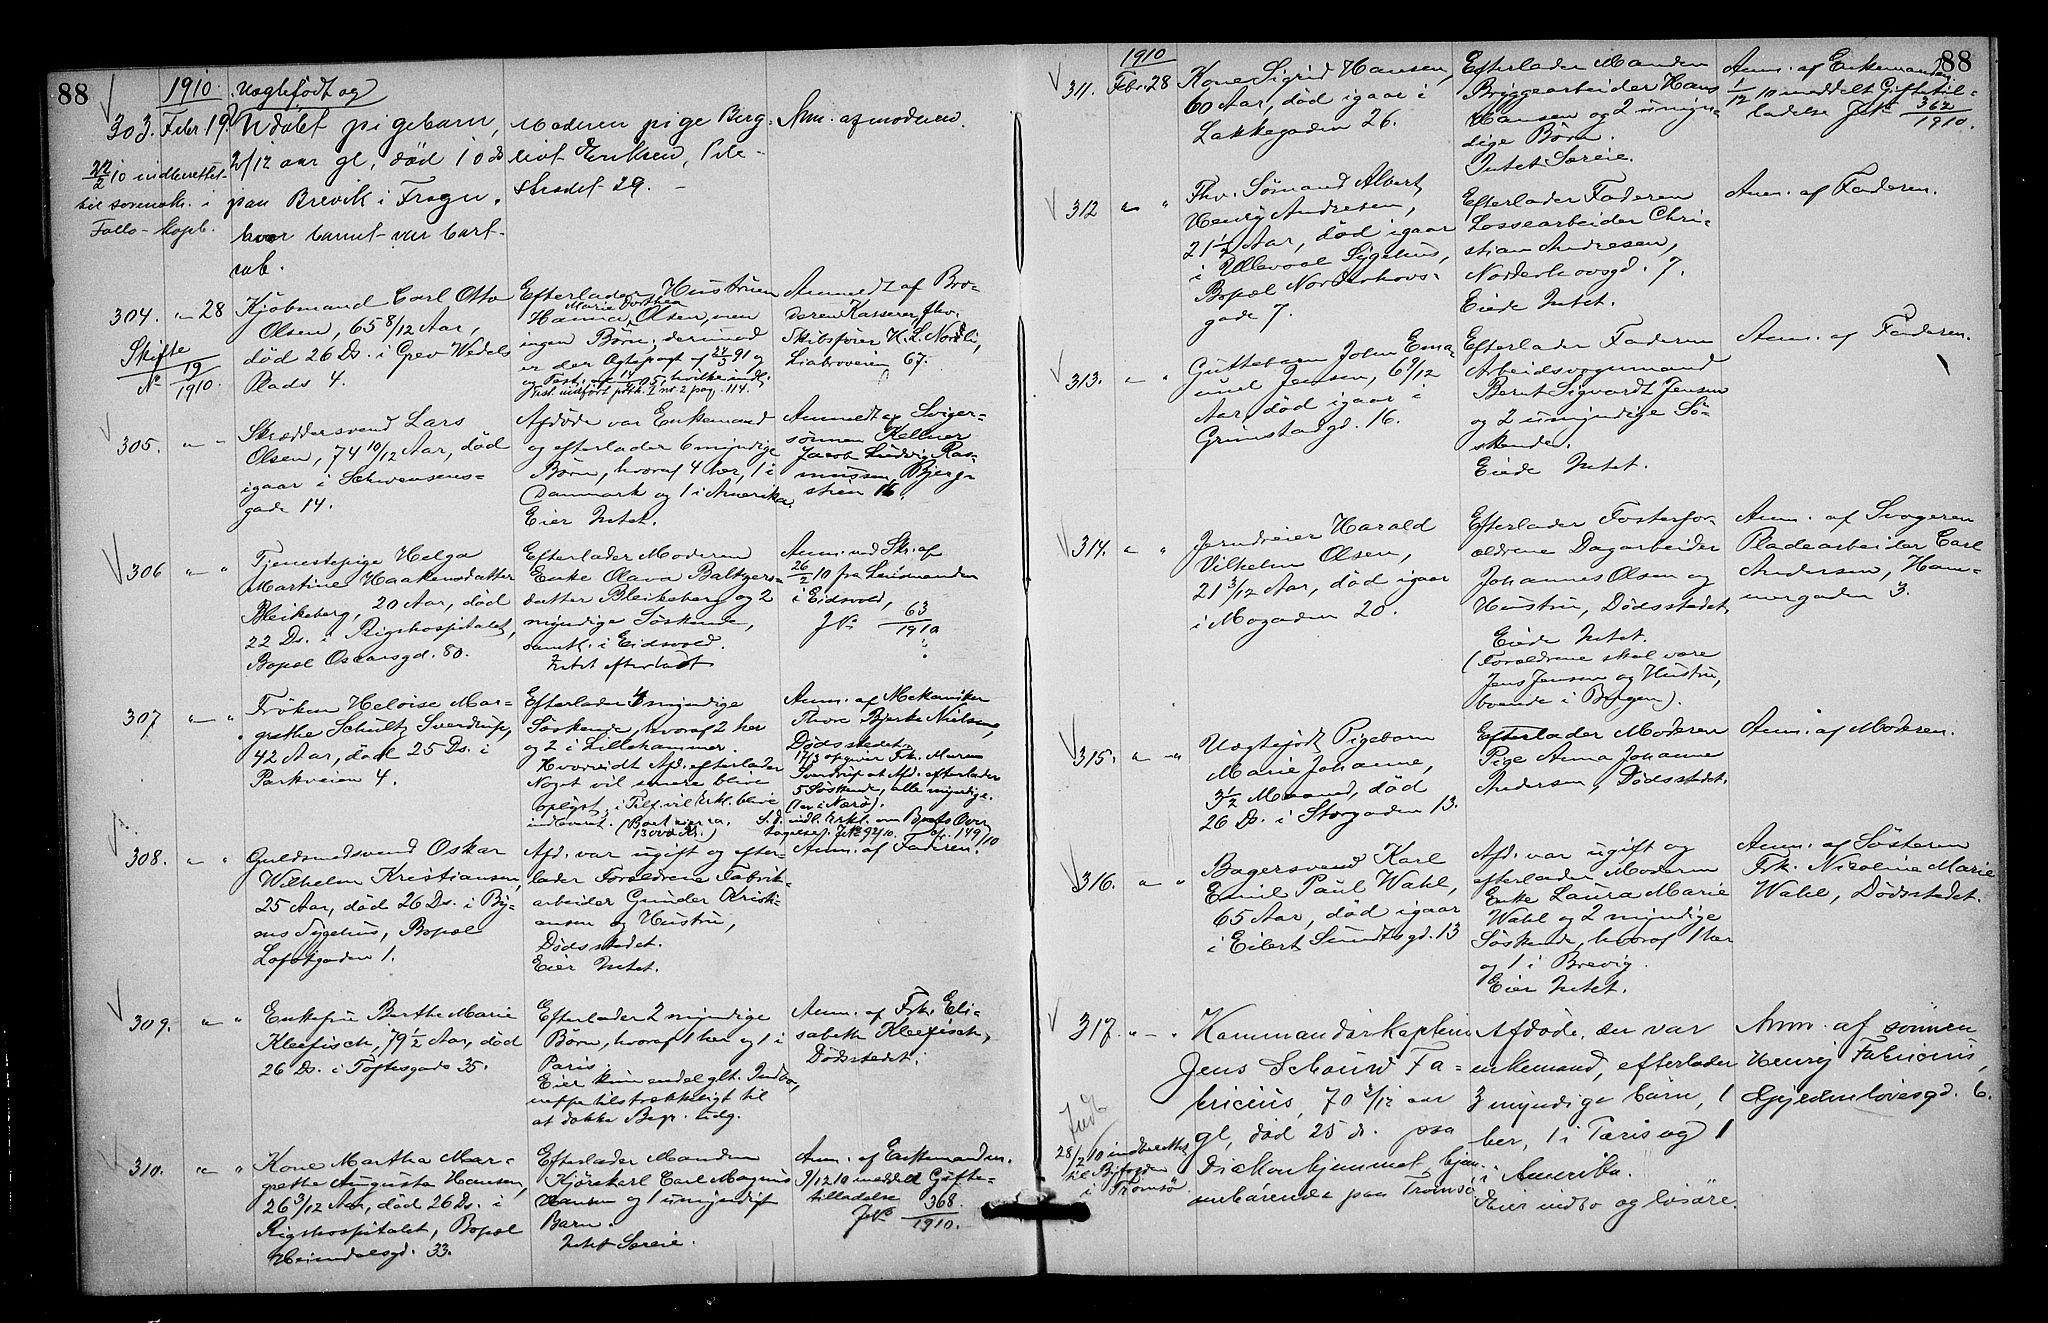 88
1910. uægtefødt og
303. Febr 19. Udøbt pigebarn,
2/12 aar gl., død 10 ds
paa Brevik i Frogn,
hvor barnet var bort-
sat.
22/2 10 indberettet
til sorensk. i
Follo - Kopb.
Moderen pige Berg-
liot Eriksen, Pile-
stredet 29. -
Anm. af moderen.
304. " 28 Kjøbmand Carl Otto
Olsen, 65 8/12 Aar,
død 26 Ds. i Grev Wedels
Plads 4.
Skifte
No 19/1910.
Efterlader Hustruen
Marie Dorthea
Hanna Olsen, men
ingen Børn; derimod
er der Ægtepagt af 24/3 91 og
og Test. af 14/ 05, hvilke indl.
Test. indført prtk. I ns. 2 pag. 114.
Anmeldt af Bro-
deren Kasserer, fhv.
Skibsfører K. L. Nordli,
Liabroveien 67.
305. " " Skræddersvend Lars
Olsen, 74 10/12 Aar, død
igaar i Schwensens-
gade 14.
Afdøde var Enkemand
og efterlader 6 myndige
Børn, hvoraf 4 her, 1 i
Danmark og 1 i Amerika.
Eier Intet.
Anmeldt af Sviger-
sønnen Kellner
Jacob Ludvig Ras-
mussen, Bjerg-
stien 16.
306 " " Tjenestepige Helga
Martine Haakensdatter
Bleikeberg, 20 Aar, død
22 Ds. i Rigshospitalet,
Bopæl Oscarsgd. 80.
Efterlader Moderen
Enke Olava Baltzers-
datter Bleikeberg og 2
myndige Søskende,
samtl. i Eidsvold.
Intet efterladt
Anm. ved Skr. af
26/2 10 fra Lensmanden
i Eidsvold,
J No 63/1910
307 " " Frøken Heloise Mar-
grethe Schultz Sverdrup,
42 Aar, død 25 Ds. i
Parkveien 4.
Efterlader 4 myndige
Søskende, hvoraf 2 her
og 2 i Lillehammer.
Hvorvidt Afd. efterlader
Noget vil senere blive
oplyst, i Tilf. vil Erkl. blive
indleveret. (Boet eier ca.
13000 Kr.)
Anm. af Mekaniker
Thore Bjerke Nielsen,
Dødsstedet.
17/3 opgiver Frk. Maren
Sverdrup at Afd. efterlader
5 Søskende, alle myndige.
(1 er i Nærø).
S. D. indl. Erkl. om Boets Over-
tagelse J No 92/10. cfr. 149/10
308. " " Guldsmedsvend Oskar
Wilhelm Kristiansen,
25 Aar, død 26 Ds. i By-
ens Sygehus, Bopæl
Lofotgaden 1.
Afd. var ugift og efter-
lader Forældrene Fabrik-
arbeider Gunder Kristi-
ansen og Hustru,
Dødsstedet.
Eier Intet.
Anm. af Faderen.
309. " " Enkefru Berthe Marie
Kleefisch, 79 1/2 Aar, død
26 Ds. i Toftesgade 35.
Efterlader 2 myndige
Børn, hvoraf 1 her og 1 i
Paris.
Eier kun endel glt. Indbo,
neppe tilstrækkeligt til
at dække Begr. udg.
Anm. af Frk. Eli-
sabeth Kleefisch,
Dødsstedet.
310. " " Kone Martha Mar-
grethe Augusta Hansen,
26 3/12 Aar, død 26 Ds. i
Rigshospitalet, Bopæl
Heimdalsgd. 33.
Efterlader Manden
Kjørekarl Carl Magnus
Hansen og 1 umyndigt
Barn.
Intet Særeie.
Anm. af Enkemanden.
9/12 10 meddelt Gifte-
tilladelse
J No 368/1910.
88
1910
311. Febr. 28 Kone Sigrid Hansen,
60 Aar, død igaar i
Lakkegaden 26.
Efterlader Manden
Bryggearbeider Hans
Hansen og 2 umyn-
dige Børn.
Intet Særeie.
Anm. af Enkemanden.
1/12 10 meddelt Giftetil-
ladelse J No 362/1910.
312 " " Fhv. Sømand Albert
Henry Andresen,
21 1/2 Aar, død igaar
i Ullevaal Sygehus,
Bopæl Norderhovs-
gade 7.
Efterlader Faderen
Lossearbeider Chri-
stian Andresen,
Norderhovsgd. 7.
Eiede Intet.
Anm. af Faderen.
313. " " Guttebarn John Ema-
nuel Jensen, 6 9/12
Aar, død igaar i
Grimstadgd. 16.
Efterlader Faderen
Arbeidsvognmand
Bernt Sigvardt Jensen
og 2 umyndige Sø-
skende.
Eiede Intet.
Anm. af Faderen.
314. " " Jerndreier Harald
Vilhelm Olsen,
21 3/12 Aar, død igaar
i Mogaden 20.
Efterlader Fosterfor-
ældrene Dagarbeider
Johannes Olsen og
Hustru, Dødsstedet,
Eiede Intet.
(Forældrene skal være
Jens Jensen og Hustru,
boende i Bergen).
Anm. af Svogeren
Pladearbeider Carl
Andersen, Ham-
mergaden 3.
315. " " Uægtefødt Pigebarn
Marie Johanne,
3 1/2 Maaned, død
26 Ds. i Storgaden 13.
Efterlader Moderen
Pige Anna Johanne
Andersen, Dødsstedet.
Anm. af Moderen.
316. " " Bagersvend Karl
Emil Paul Wahl,
65 Aar, død igaar
i Eilert Sundtsgd. 13
Afd. var ugift og
efterlader Moderen
Enke Laura Marie
Wahl og 2 myndige
Søskende, hvoraf 1 her
og 1 i Brevig.
Eier Intet.
Anm. af Søsteren
Frk. Nicoline Marie
Wahl, Dødsstedet.
317. " " Kommandørkaptein
Jens Schouw Fa-
bricius, 70 3/12 aar
gl, død 25 ds. paa
Diakonhjemmet, hjem-
mehørende paa Tromsø
28/2 10 indberettet
til Byfogden
i Tromsø
Afdøde, der var
enkemand, efterlader
3 myndige børn, 1
her, 1 i Paris og 1
i Amerika.
Eier indbo og løsøre.
Anm. af sønnen
Henrij Fabricius,
Gyldenløvesgd. 6.